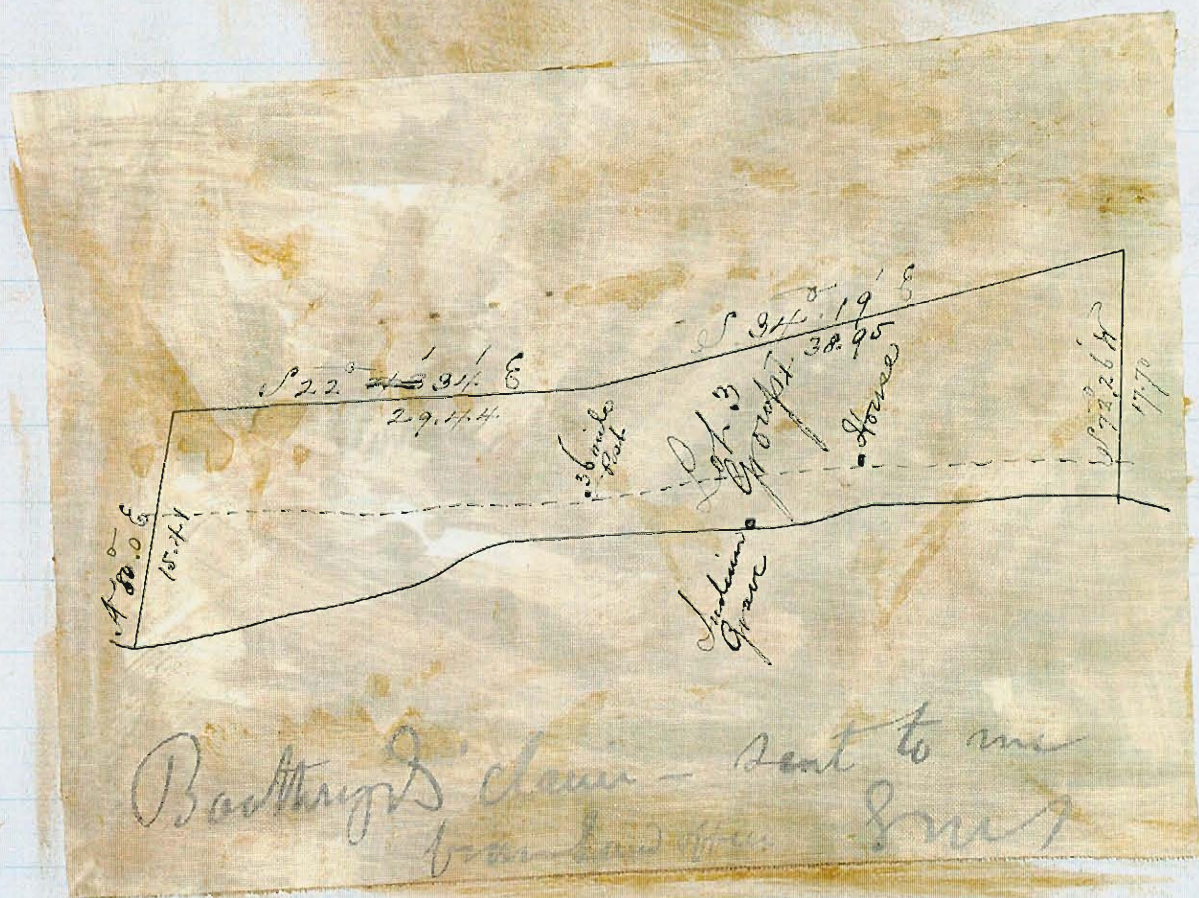 S 22° 34' E
29.44
S 34°.19' E
38.95
S 72°.26' W
17.70
N 80°.0 E
15.41
36 mile
Post
Lot. 3
Group 1.
House
Indian
Grave
Boothroyd's claim – sent to me
from Land office